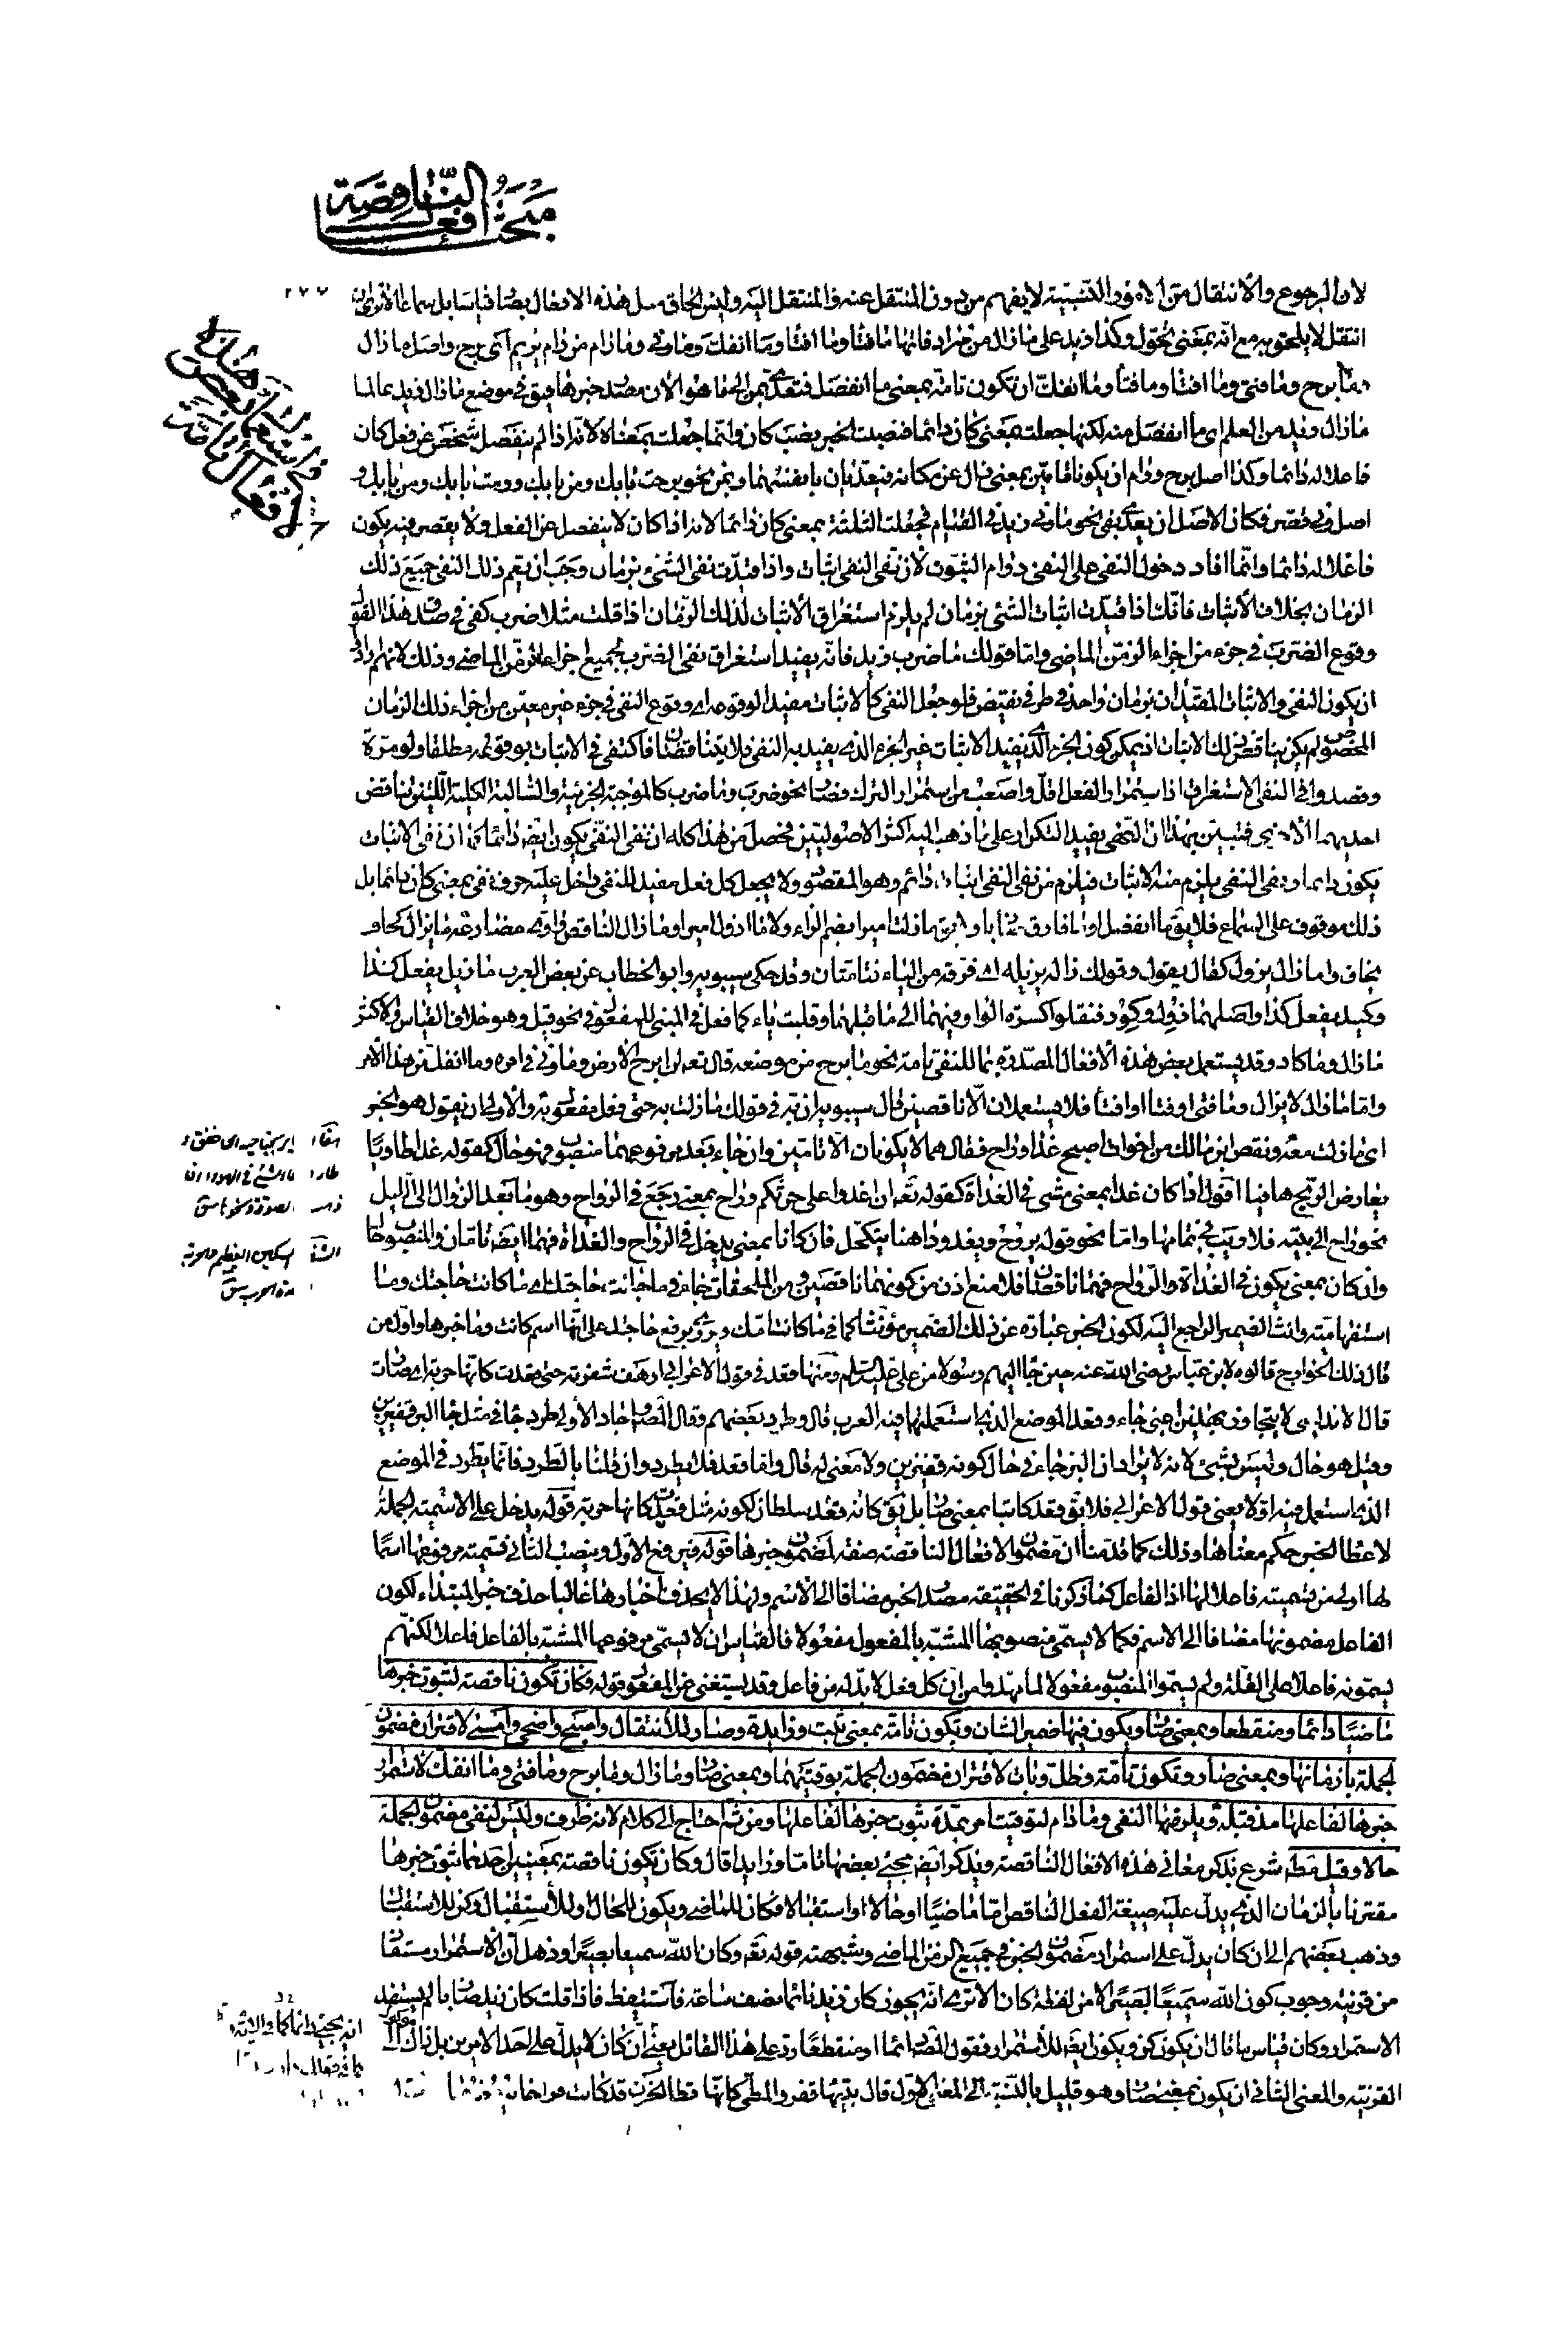 مبحث افعال الناقصة
٢٧٧
لان الرجوع والانتقال من الامور النسبية لا يفهم من دون المنتقل عنه والمنتقل اليه وليس الحاق مثل هذه الافعال بصار قياسا بل سماعا الا ترى ان
انتقل لا يلحق به مع انه بمعنى تحول وكذا زيد على مازال من مرادفاتها ما فتأ وما افتأ وما انفك وما ونى وما رام من رام يريم اى برح واصل ما زال
وما برح وما فتئ وما افتأ وما فتأ وما انفك ان تكون تامة بمعنى ما انفصل فتعدى بمن الى ما هو الآن مصدر خبرها فيق فى موضع ما زال زيد عالما
ما زال زيد من العلم اى ما انفصل منه لكنها جعلت بمعنى كان دائما فنصبت الخبر نصب كان وانما جعلت بمعناه لانه اذا لم ينفصل شخص عن فعل كان
فاعلا له دائما وكذا اصل برح ورام ان يكونا تامتين بمعنى زال عن مكانه فيتعديان بانفسهما وبمن نحو برحت بابك ومن بابك ورمت بابك ومن بابك و
اصل ونى قصر فكان الاصل ان يعدى بفى نحو ما ونى زيد فى القيام فجعلت الثلثة بمعنى كان دائما لانه اذا كان لا ينفصل عن الفعل ولا يقصر فيه يكون
فاعلا له دائما وانما افاد دخول النفى على النفى دوام الثبوت لان نفى النفى اثبات واذا قيدت نفى الشئ بزمان وجب ان يعم ذلك النفى جميع ذلك
الزمان بخلاف الاثبات فانك اذا قيدت اثبات الشئ بزمان لم يلزم استغراق الاثبات لذلك الزمان اذا قلت مثلا ضرب كفى فى صدق هذا القول
وقوع الضرب فى جزء من اجزاء الزمن الماضى واما قولك ما ضرب زيد فانه يفيد استغراق نفى الضرب لجميع اجزاء الزمن الماضى وذلك لانهم ارادوا
ان يكون النفى والاثبات المقيدان بزمان واحد فى طرفى نقيض فلو جعل النفى كالاثبات مفيد الوقوعه اى وقوع النفى فى جزء غير معين من اجزاء ذلك الزمان
المخصوص لم يكن يناقض ذلك الاثبات اذ يمكن كون الجزء الذى يفيد الاثبات غير الجزء الذى يفيد به النفى فلا يتناقضان فاكتفى فى الاثبات بوقوعه مطلقا ولو مرة
وقصدوا فى النفى الاستغراق اذ استمرار الفعل اقل واصعب من استمرار الترك فصار نحو ضرب وما ضرب كالموجبة الجزئية والسالبة الكلية اللتين تناقض
احديهما الاخرى فتبين بهذا ان النهى يفيد التكرار على ما ذهب اليه اكثر الاصوليين فحصل من هذا كله ان نفى النفى يكون ايض دائما كما ان نفى الاثبات
يكون دائما ونفى النفى يلزم منه الاثبات فيلزم من نفى النفى اثبات دائم وهو المقصود ولا يجعل كل فعل مفيد للنفى دخل عليه حرف نفى بمعنى كان دائما بل
ذلك موقوف على السماع فلا يق ما انفصل او ما فارق ضاربا وا ما زلت اميرا بضم الزاء ولا ما ازول اميرا وما زال الناقص واوى مضارعه ما يزال كخاف
يخاف واما زال يزول كقال يقول وقولك زاله يزيله اى فرقه من الياء فتامتان وقد حكى سيبويه وابو الخطاب عن بعض العرب ما زيل يفعل كذا
وكيد يفعل كذا واصلهما زول وكود فنقلوا كسرة الواو فيهما الى ما قبلهما وقلبت ياء كما فعل فى المبنى للمفعول فى نحو قيل وهو خلاف القياس والاكثر
ما زال وما كاد وقد يستعمل بعض هذه الافعال المصدرة بما للنفى تامة نحو ما برح من موضعه قال تعه لن ابرح الارض وما ونى فى امره وما انفك من هذا الامر
واما ما زال لا يزال وما فتئ او فتأ او افتأ فلا يستعملان الا ناقصين قال سيبويه ان به فى قولك ما زلت به حتى فعل مفعول به والاولى ان يقول هو الخبر
اى ما زلت معه ونقص ابن مالك من اخوات اصبح غدا وراح فقال هما لا يكونان الا تامتين وان جاء بعد مرفوعهما منصوب فهو حال كقوله غدا طاويا
يعارض الريح هافيا اقول اذا كان غدا بمعنى مشى فى الغداة كقوله تعه ان اغدوا على حرثكم وراح بمعنى رجع فى الرواح وهو ما بعد الزوال الى الليل
نحو راح الى بيته فلا ريب فى تمامها واما نحو قوله يروح ويغدو داهنا يتكحل فان كانا بمعنى يدخل فى الرواح والغداة فهما ايض تامان والمنصوب حال
وان كان بمعنى يكون فى الغداة والرواح فهما ناقصان فلا منع اذن من كونهما ناقصين ومن الملحقات جاء فى ما جاءت حاجتك اى ما كانت حاجتك وما
استفهامية وانث الضمير الراجع اليه لكون الخبر عبارة عن ذلك الضمير مؤنثا كما فى ما كانت امك ويروى برفع حاجتك على انها اسم كانت وما خبرها واول من
قال ذلك الخوارج قالوه لابن عباس رضى الله عنه حين جاء اليهم رسولا من على عليه السلم ومنها قعد فى قول الاعرابى ارهف شفرته حتى قعدت كانها حربة اى صارت
قال الاندلسى لا يتجاوز بهذين اعنى جاء وقعد الموضع الذى استعملتهما فيه العرب قال وطرد بعضهم وقال المص واجاد الاولى طرد جاء فى مثل جاء البر قفيزين
وقيل هو حال وليس بشئ لانه لا يراد ان البر جاء فى حال كونه قفيزين ولا معنى له قال واما قعد فلا يطرد وان قلنا بالطرد فانما يطرد فى الموضع
الذى استعمل فيه اولا يعنى قول الاعرابى فلا يق قعد كاتبا بمعنى صار بل يق كانه قعد سلطان لكونه مثل قعدت كانها حربة قوله يدخل على الاسمية الجملة
لاعطاء الخبر حكم معناها وذلك كما قدمنا ان مضمون الافعال الناقصة صفة لمضمون خبرها قوله فيرفع الاول وينصب الثانى فتسمية مرفوعها اسما
لها اولى من تسميته فاعلا لها اذ الفاعل كما ذكرنا فى الحقيقة مصدر الخبر مضافا الى الاسم ولهذا لا يحذف اخبارها غالبا حذف خبر المبتداء لكون
الفاعل مضمونها مضافا الى الاسم فكما لا يسمى منصوبها المشبه بالمفعول مفعولا فالقياس ان لا يسمى مرفوعها المشبه بالفاعل فاعلا لكنهم
يسمونه فاعلا على القلة ولم يسموا المنصوب مفعولا لما مهدوا من ان كل فعل لا بد له من فاعل وقد يستغنى عن المفعول قوله فكان تكون ناقصة لثبوت خبرها
ماضيا دائما ومنقطعا وبمعنى صار ويكون فيها ضمير الشان وتكون تامة بمعنى ثبت وزايدة وصار للانتقال واصبح واضحى وامسى لاقتران مضمون
الجملة بازمانها وبمعنى صار وتكون تامة وظل وبات لاقتران مضمون الجملة بوقتيهما وبمعنى صار وما زال وما برح وما فتئ وما انفك لاستمرار
خبرها لفاعلها مذ قبله ويلزمها النفى وما دام لتوقيت امر بمدة ثبوت خبرها لفاعلها ومن ثم احتاج الى كلام لانه ظرف وليس لنفى مضمون الجملة
حالا وقيل مط شرع بذكر معانى هذه الافعال الناقصة ويذكر ايض مجئ بعضها تاما وزايدا قال وكان تكون ناقصة بمعنيين احدهما ثبوت خبرها
مقترنا بالزمان الذى يدل عليه صيغة الفعل الناقص اما ماضيا او حالا او استقبالا فكان للماضى ويكون للحال او للاستقبال وكن للاستقبال
وذهب بعضهم الى ان كان يدل على استمرار مضمون الخبر فى جميع الزمن الماضى وشبهته قوله تعه وكان الله سميعا بصيرا وذهل ان الاستمرار مستفاد
من قرينة وجوب كون الله سميعا بصيرا لا من لفظة كان الا ترى انه يجوز كان زيد نائما نصف ساعة فاستيقظ فاذا قلت كان زيد ضاربا لم يستفد
الاستمرار وكان قياس ما قال ان يكون كن ويكون ايض للاستمرار فقول المص دائما او منقطعا رد على هذا القائل يعنى ان كان لا يدل على احد الامرين بل ذاك الى
القرينة والمعنى الثانى ان يكون بمعنى صار وهو قليل بالنسبة الى المعنى الاول قال بتيهاء قفر والمطى كانها قطا الحزن قد كانت فراخا